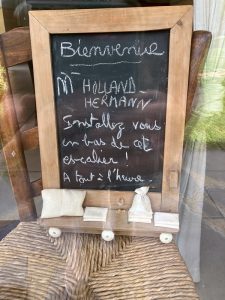 Bienvenue
M HOLLAND-
HERMANN
Installez vous
en bas de cet
escalier !
A tout à l'heure.